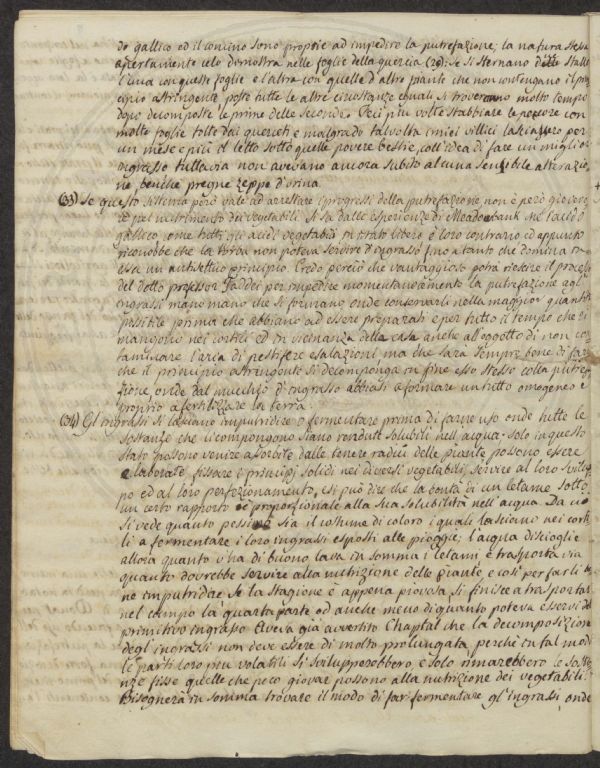 do gallico ed il concino sono proprie ad impedire la putrefazione; la natura stessa
apertamente celo dimostra nelle foglie della quercia (20); se si sternano delle stalle
l'una con queste foglie e l'altra con quelle d'altre piante che non contengano il prin
cipio astringente poste tutte le altre circostanze eguali si troveranno molto tempo
dopo decomposte le prime delle seconde. Feci più volte stabbiare le pecore con
molte foglie tolte dai querceti e malgrado talvolta i miei villici lasciassero per
un mese e più il letto sotto quelle povere bestie, coll'idea di fare un miglior
ingrasso tuttavia non avevano ancora subito alcuna sensibile alterazio
ne, benché pregne zeppe d'orina.
(33) Se questo sistema però vale ad arrestare i progressi della putrefazione non è però giovevo
le pel nutrimento dei vegetabili. Si sa dalle esperienze di Meadowbank che l'acido
gallico, come tutti gli acidi vegetabili in stato libero è loro contrario ed appunto
riconobbe che la torba non poteva servire d'ingrasso fino a tanto che domina in
essa un antisettico principio. Credo perciò che vantaggioso potrà riescire il processo
del dotto professor Taddei per impedire momentaneamente la putrefazione agl'
ingrassi mano mano che si formano onde conservarli nella maggior quantità
possibile prima che abbiano ad essere preparati e per tutto il tempo che ri
mangono nei cortili ed in vicinanza della casa anche all'oggetto di non con
taminare l'aria di pestifere esalazioni ma che sarà sempre bene di fare
che il principio astringente si decomponga in fine esso stesso colla putrefa
zione, onde dal mucchio d'ingrasso abbiasi a formare un tutto omogeneo e
proprio a fertilizzare la terra.
(34) Gl'ingrassi si lasciano imputridire o fermentare prima di farne uso onde tutte le
sostanze che li compongono siano rendute solubili nell'acqua; solo in questo
stato possono venire assorbite dalle tenere radici delle piante possono essere
elaborate, fissare i principj solidi nei diversi vegetabili, servire al loro svilup
po ed al loro perfezionamento, e si può dire che la bontà di un letame sotto
un certo rapporto è proporzionale alla sua solubilità nell'acqua. Da ciò
si vede quanto pessimo sia il costume di coloro i quali lasciano nei corti
li a fermentare i loro ingrassi esposti alle pioggie; l'acqua discioglie
allora quanto v'ha di buono lava in somma i letami e trasporta via
quanto dovrebbe servire alla nutrizione delle piante, e così per farli be
ne imputridire se la stagione è appena piovosa si finisce a trasportar
nel campo la quarta parte ed anche meno di quanto poteva esservi del
primitivo ingrasso. Aveva già avvertito Chaptal che la decomposizione
degl'ingrassi non deve essere di molto prolungata, perchè in tal modo
le parti loro più volatili si svilupperebbero, e solo rimarrebbero le sosta
nze fisse quelle che poco giovar possono alla nutrizione dei vegetabili.
Bisognerà in somma trovare il modo di far fermentare gl'ingrassi, onde